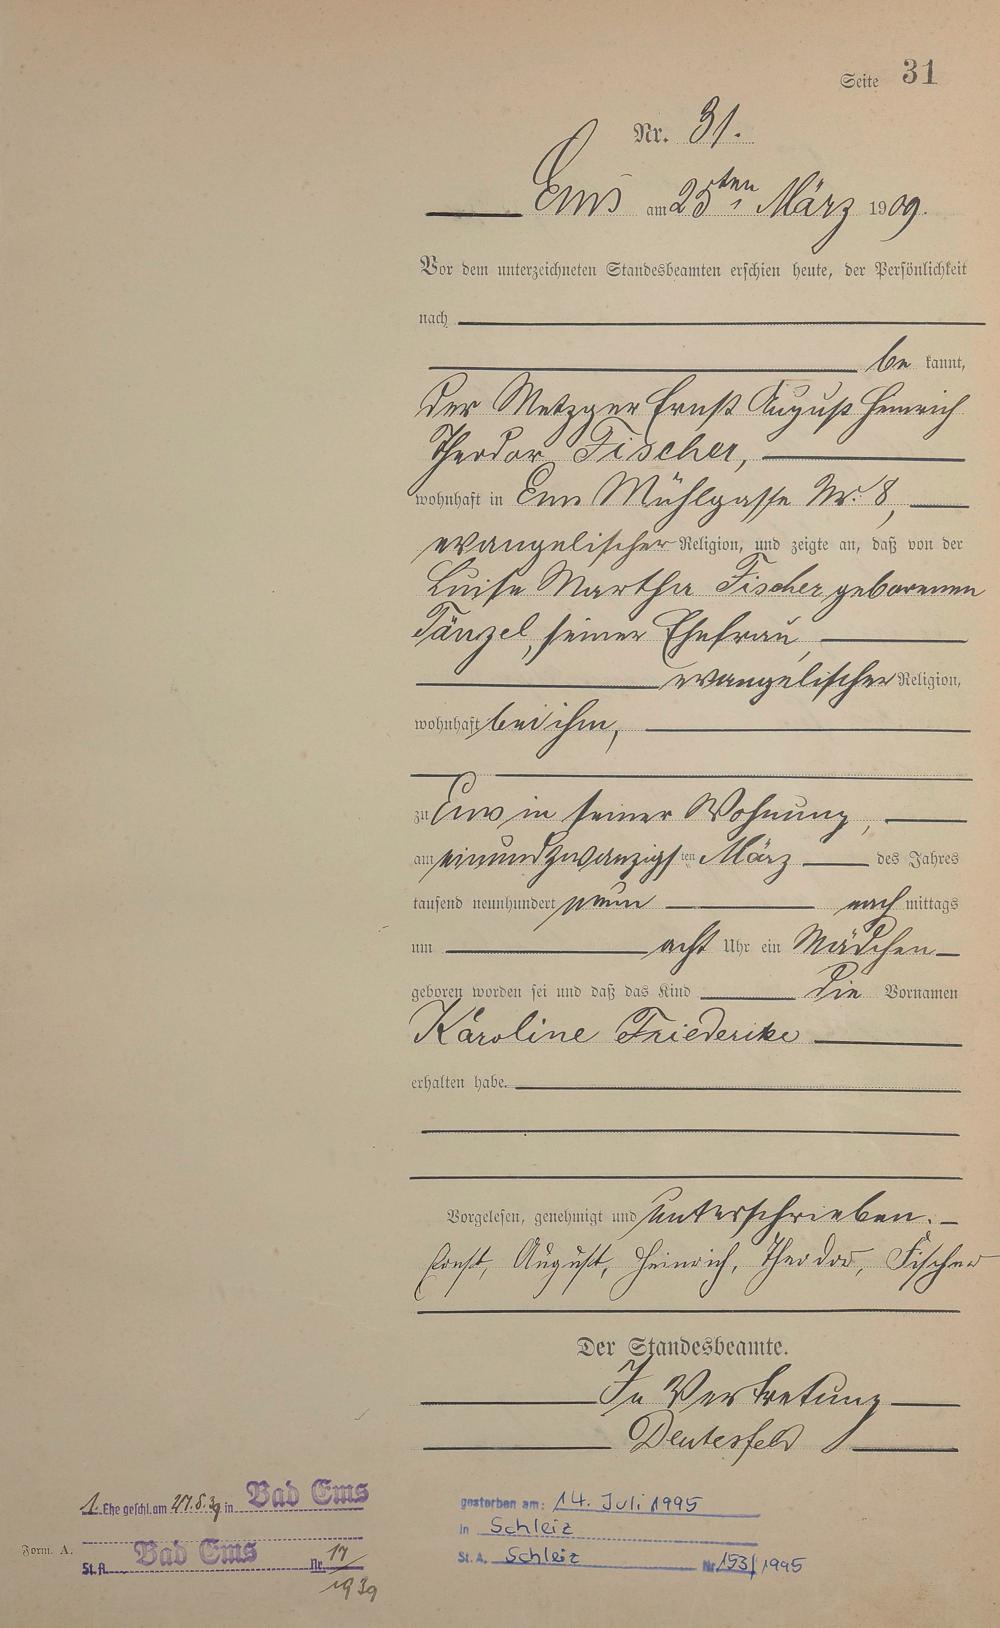 Seite 31
Nr. 31.
Ems am 25ten März 1909.
Vor dem unterzeichneten Standesbeamten erschien heute, der Persönlichkeit
nach
be kannt,
der Metzger Ernst August Heinrich
Theodor Fischer,
wohnhaft in Ems Mühlgasse Nr. 8,
evangelischer Religion, und zeigte an, daß von der
Luise Martha Fischer geborenen
Tänzel, seiner Ehefrau,
evangelischer Religion,
wohnhaft bei ihm,
zu Ems in seiner Wohnung,
am einundzwanzigsten März des Jahres
tausend neunhundert neun nach mittags
um acht Uhr ein Mädchen
geboren worden sei und daß das Kind die Vornamen
Karoline Friederike
erhalten habe.
Vorgelesen, genehmigt und unterschrieben.
Ernst, August, Heinrich, Theodor, Fischer
Der Standesbeamte.
In Vertretung
Deutesfeld
1. Ehe geschl. am 27.5.39 in Bad Ems
St. A. Bad Ems Nr. 17/1939
Form. A.
gestorben am: 14. Juli 1995
in Schleiz
St. A. Schleiz Nr. 153/1995